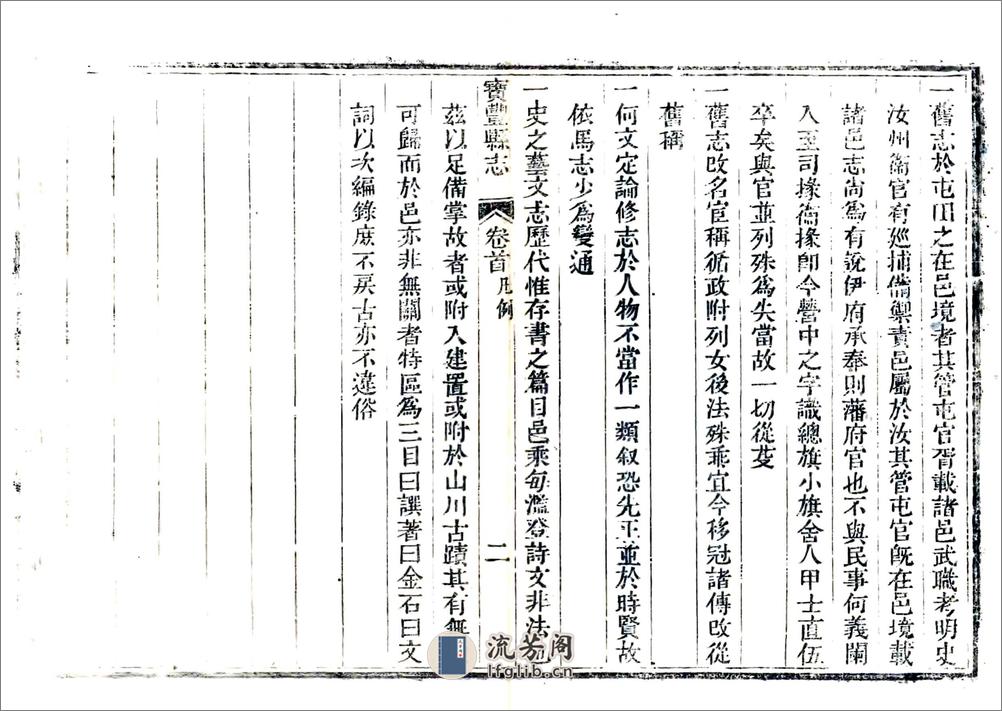 一舊志於屯田之在邑境者其管屯官胥載諸邑武職考明史
汝州衞官有廵捕備禦責邑屬於汝其管屯官旣在邑境載
諸邑志尚爲有說伊府承奉則藩府官也不與民事何義闌
入至司掾僞掾卽今營中之字識總旗小旗舍人甲士直伍
卒矣與官並列殊爲失當故一切從芟
一舊志改名宦稱循政附列女後法殊乖宜今移冠諸傳改從
舊稱
一何文定論修志於人物不當作一類叙恐先正並於時賢故
依馬志少爲變通
一史之藝文志歷代惟存書之篇目邑乘每濫登詩文非法
寶豐縣志
卷首
凡例
二
茲以足備掌故者或附入建置或附於山川古蹟其有無
可歸而於邑亦非無關者特區爲三目曰譔著曰金石曰文
詞以次編錄庶不戾古亦不違俗
流芳阁
lfglib.cn